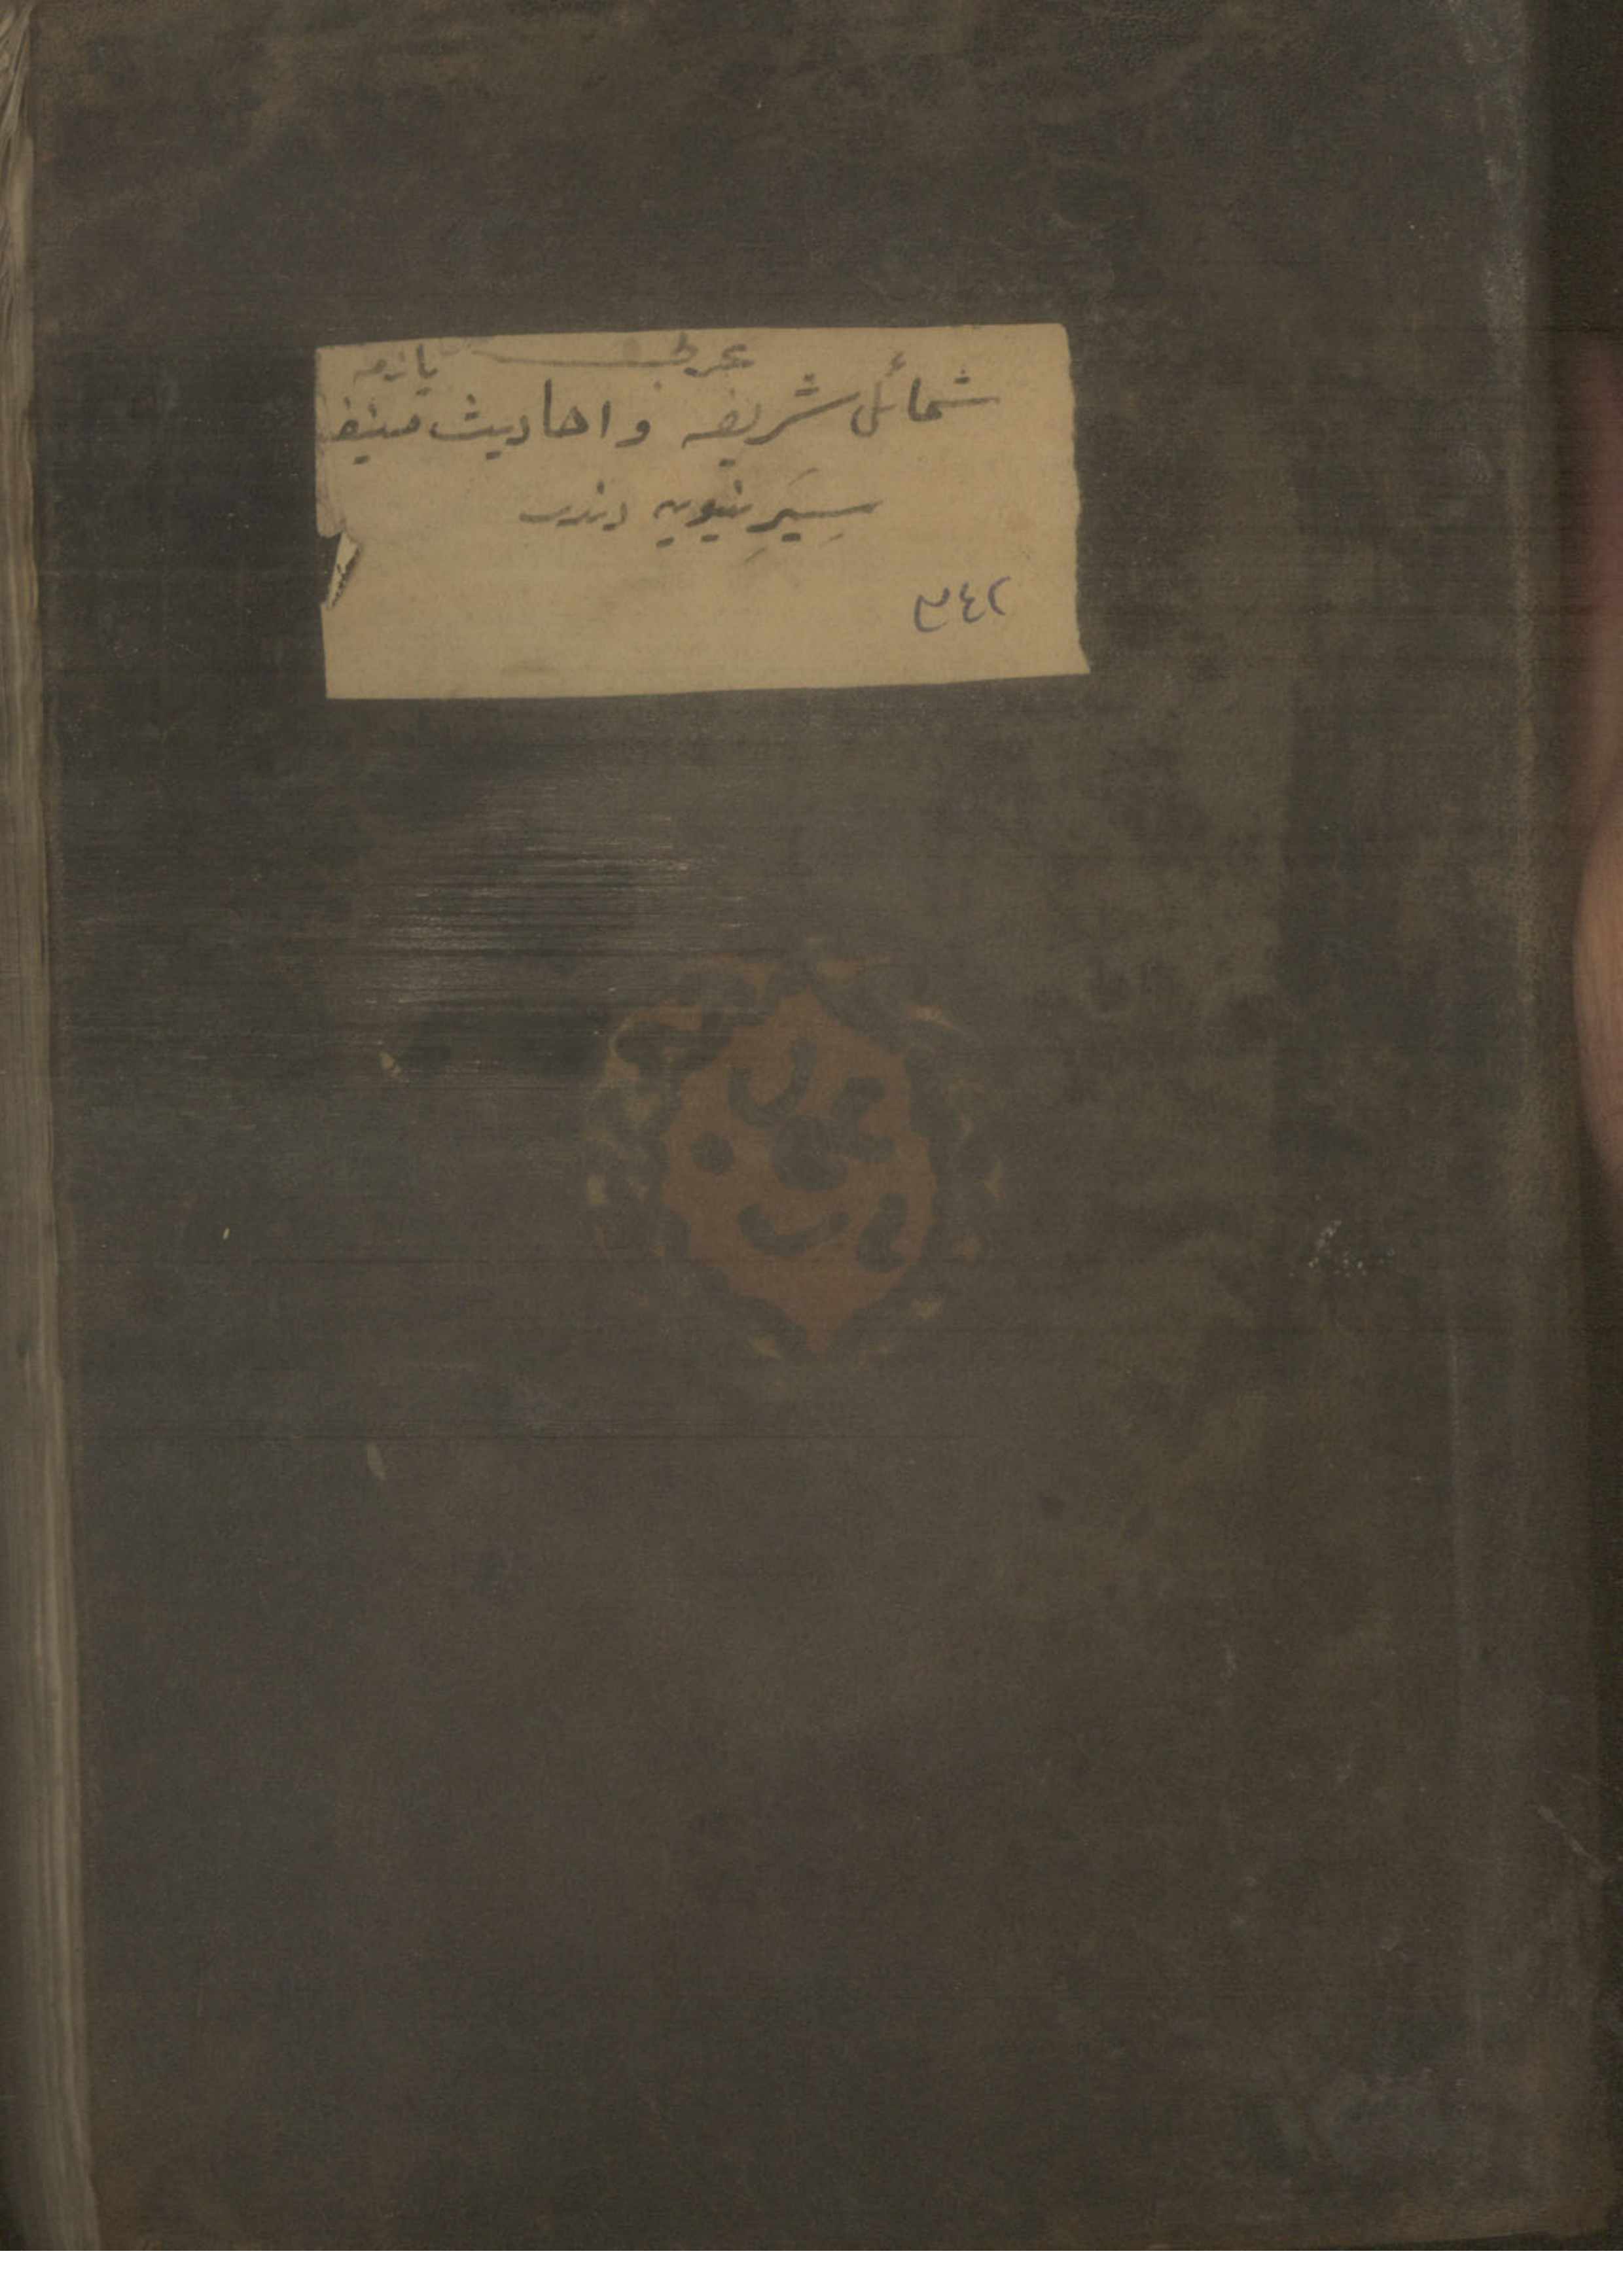 عربی یازمه
شمائل شریفه واحادیث منیفه
سِیَرِ نبویه دندر
٣٤٢